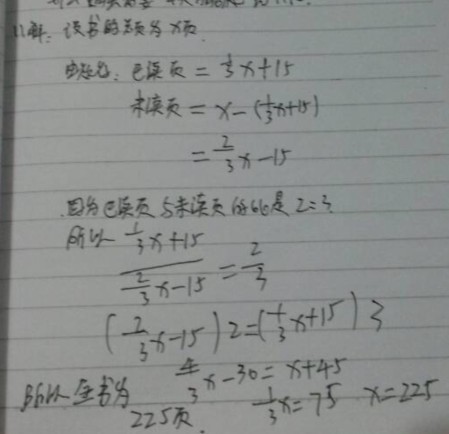 11解:设书的总页为x页
由题意:已读页 = 1/3x+15
未读页 = x-(1/3x+15)
= 2/3x-15
因为已读页与未读页的比是2:3
所以 (1/3x+15)/(2/3x-15) = 2/3
(2/3x-15)2=(1/3x+15)3
4/3x-30=x+45
1/3x=75 x=225
所以全书为225页.